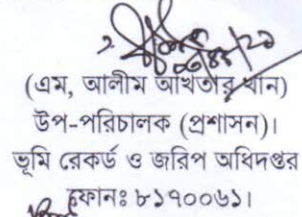 (এম, আলীম আখতার খান)
উপ-পরিচালক (প্রশাসন)।
ভূমি রেকর্ড ও জরিপ অধিদপ্তর
ফোনঃ ৮১৭০০৬১।